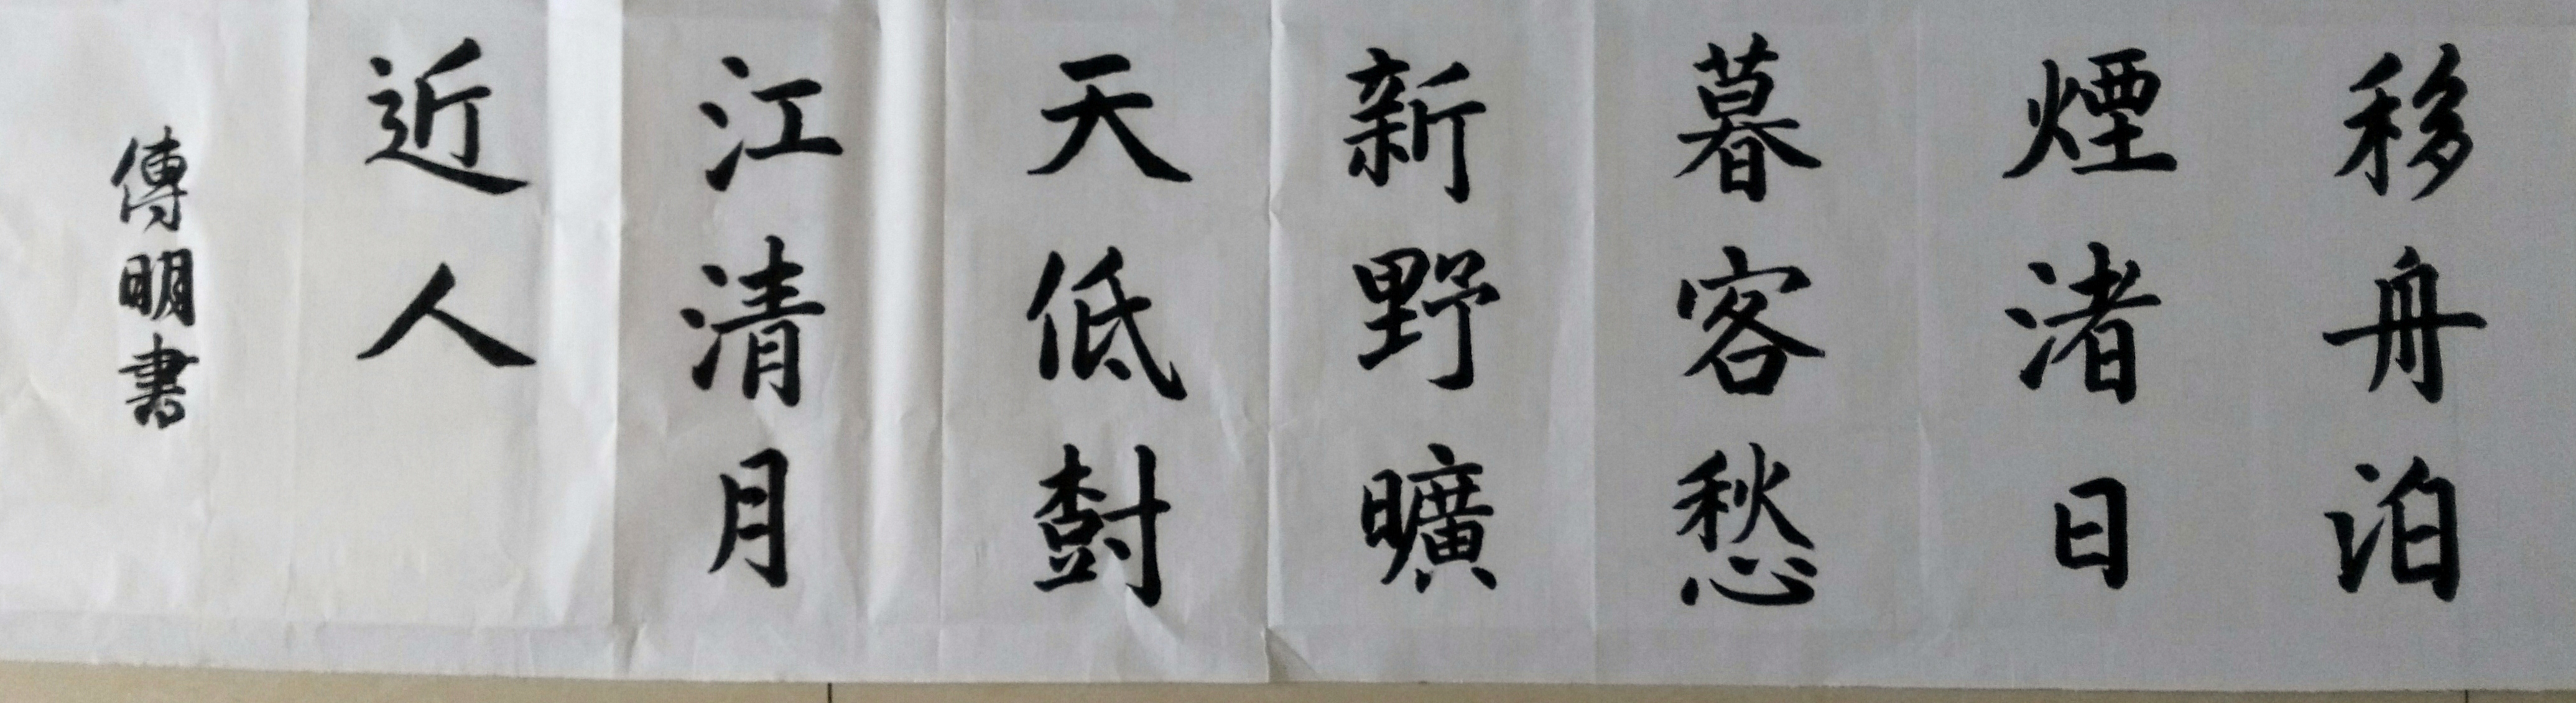 移舟泊
煙渚日
暮客愁
新野曠
天低樹
江清月
近人
傳明書